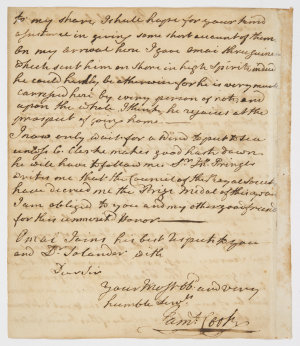 to my share, I shall hope for your kind
assistance in giving some short account of them
On my arrival here I gave Omai three guineas
which sent him on shore in high spirits, indeed
he could hardly be otherwise for he is very much
carressed here by every person of note, and
upon the whole, I think, he rejoices at the
prospect of going home.
I now only wait for a wind to put to sea
unless C. Clerke makes good haste down
he will have to follow me. Sr. Jno. Pringle
writes me that the Council of the Royal Society
have decreed me the Prize Medal of this year
I am obliged to you and my other good friends
for this unmerited Honor
Omai Joins his best respects to you
and Dr. Solander with
Dear Sir
Your Most Obt. and very
humble Servt.
Jams. Cook